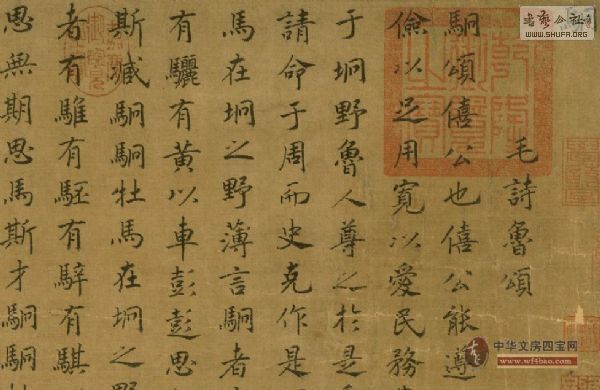 毛詩魯頌
駉頌僖公也僖公能遵
儉以足用寬以愛民務
于坰野魯人尊之於是
請命于周而史克作是
馬在坰之野薄言駉者
有驪有黃以車彭彭思
斯臧駉駉牡馬在坰之野
者有騅有駓有騂有騏
思無期思馬斯才駉駉牡
书艺公社
WWW.SHUFA.ORG
中华文房四宝网
www.wf4bao.com